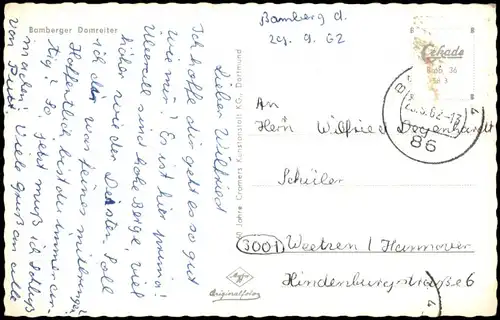 Bamberger Domreiter
Bamberg d.
29. 9. 62
Lieber Wilfried
Ich hoffe dir geht es so gut
wie mir! Es ist hier prima!
Überall sind hohe Berge, viel
höher wie der Deister. Soll
ich dir was feines mitbringen?
Hoffentlich bist du immer an-
artig! So, jetzt muß ich Schluß
machen! Viele Grüße an alle
von Putt.
60 Jahre Cramers Kunstanstalt KG., Dortmund
An
Herrn Wilfried Degenhardt
Schüler
3001 Weetzen / Hannover
Hindenburgstraße 6
Agfa
Originalfoto
Cekade
Blob. 36
62-13
86